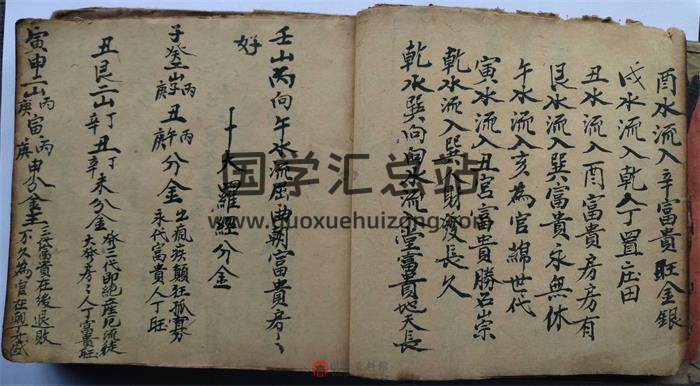 酉水流入辛富貴旺金銀
戌水流入乾人丁置庄田
丑水流入酉富貴房房有
艮水流入巽富貴永無休
午水流入亥為官綿世代
寅水流入丑宮富貴勝石崇
乾水流入巽財發長久
乾水巽向向水流堂富貴地天長
壬山丙向午水流屈曲朝富貴房々
好
十大羅經分金
子癸二山丙庚子丙庚午分金
出瘋疾顛狂孤寡
永代富貴人丁旺
丑艮二山丁辛丑丁辛未分金
發三代即絕產厄流徒
大發房々人丁富貴旺
寅申二山丙庚寅丙庚申分金
三代富貴在後退敗
不久為官在朝
国学汇总站
www.guoxuehuizong.com